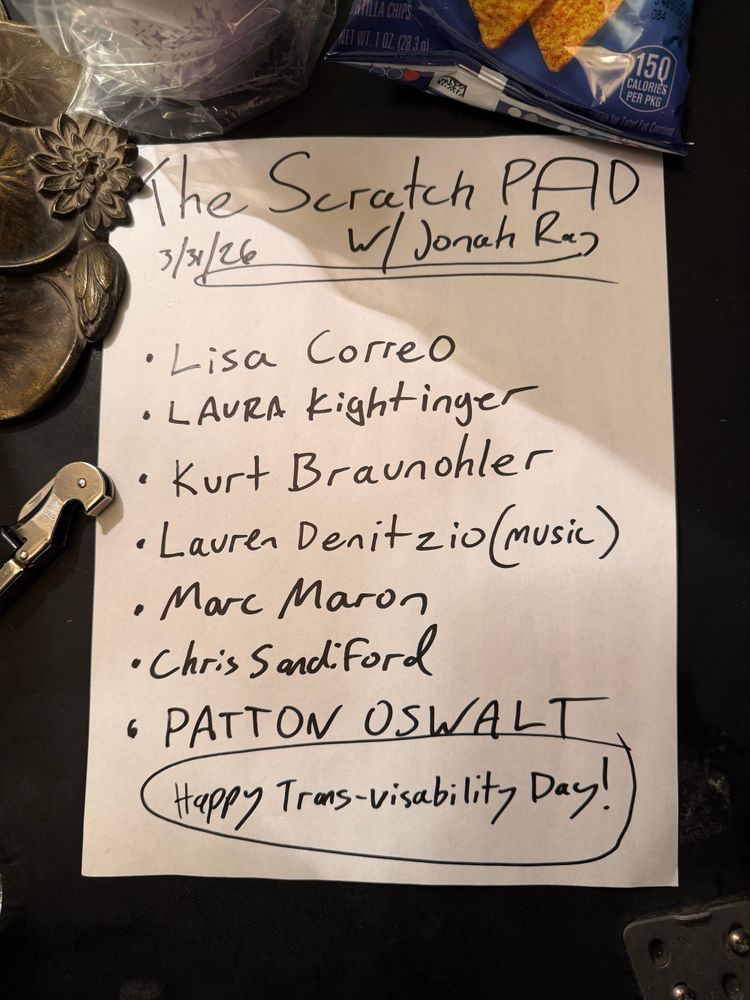 TILLA CHIPS
NET WT. 1 OZ. (28.3 g)
150
CALORIES
PER PKG
The Scratch PAD
3/31/26 W/ Jonah Ray
• Lisa Correo
• LAURA Kightinger
• Kurt Braunohler
• Lauren Denitzio (music)
• Marc Maron
• Chris Sandiford
• PATTON OSWALT
Happy Trans-visability Day!